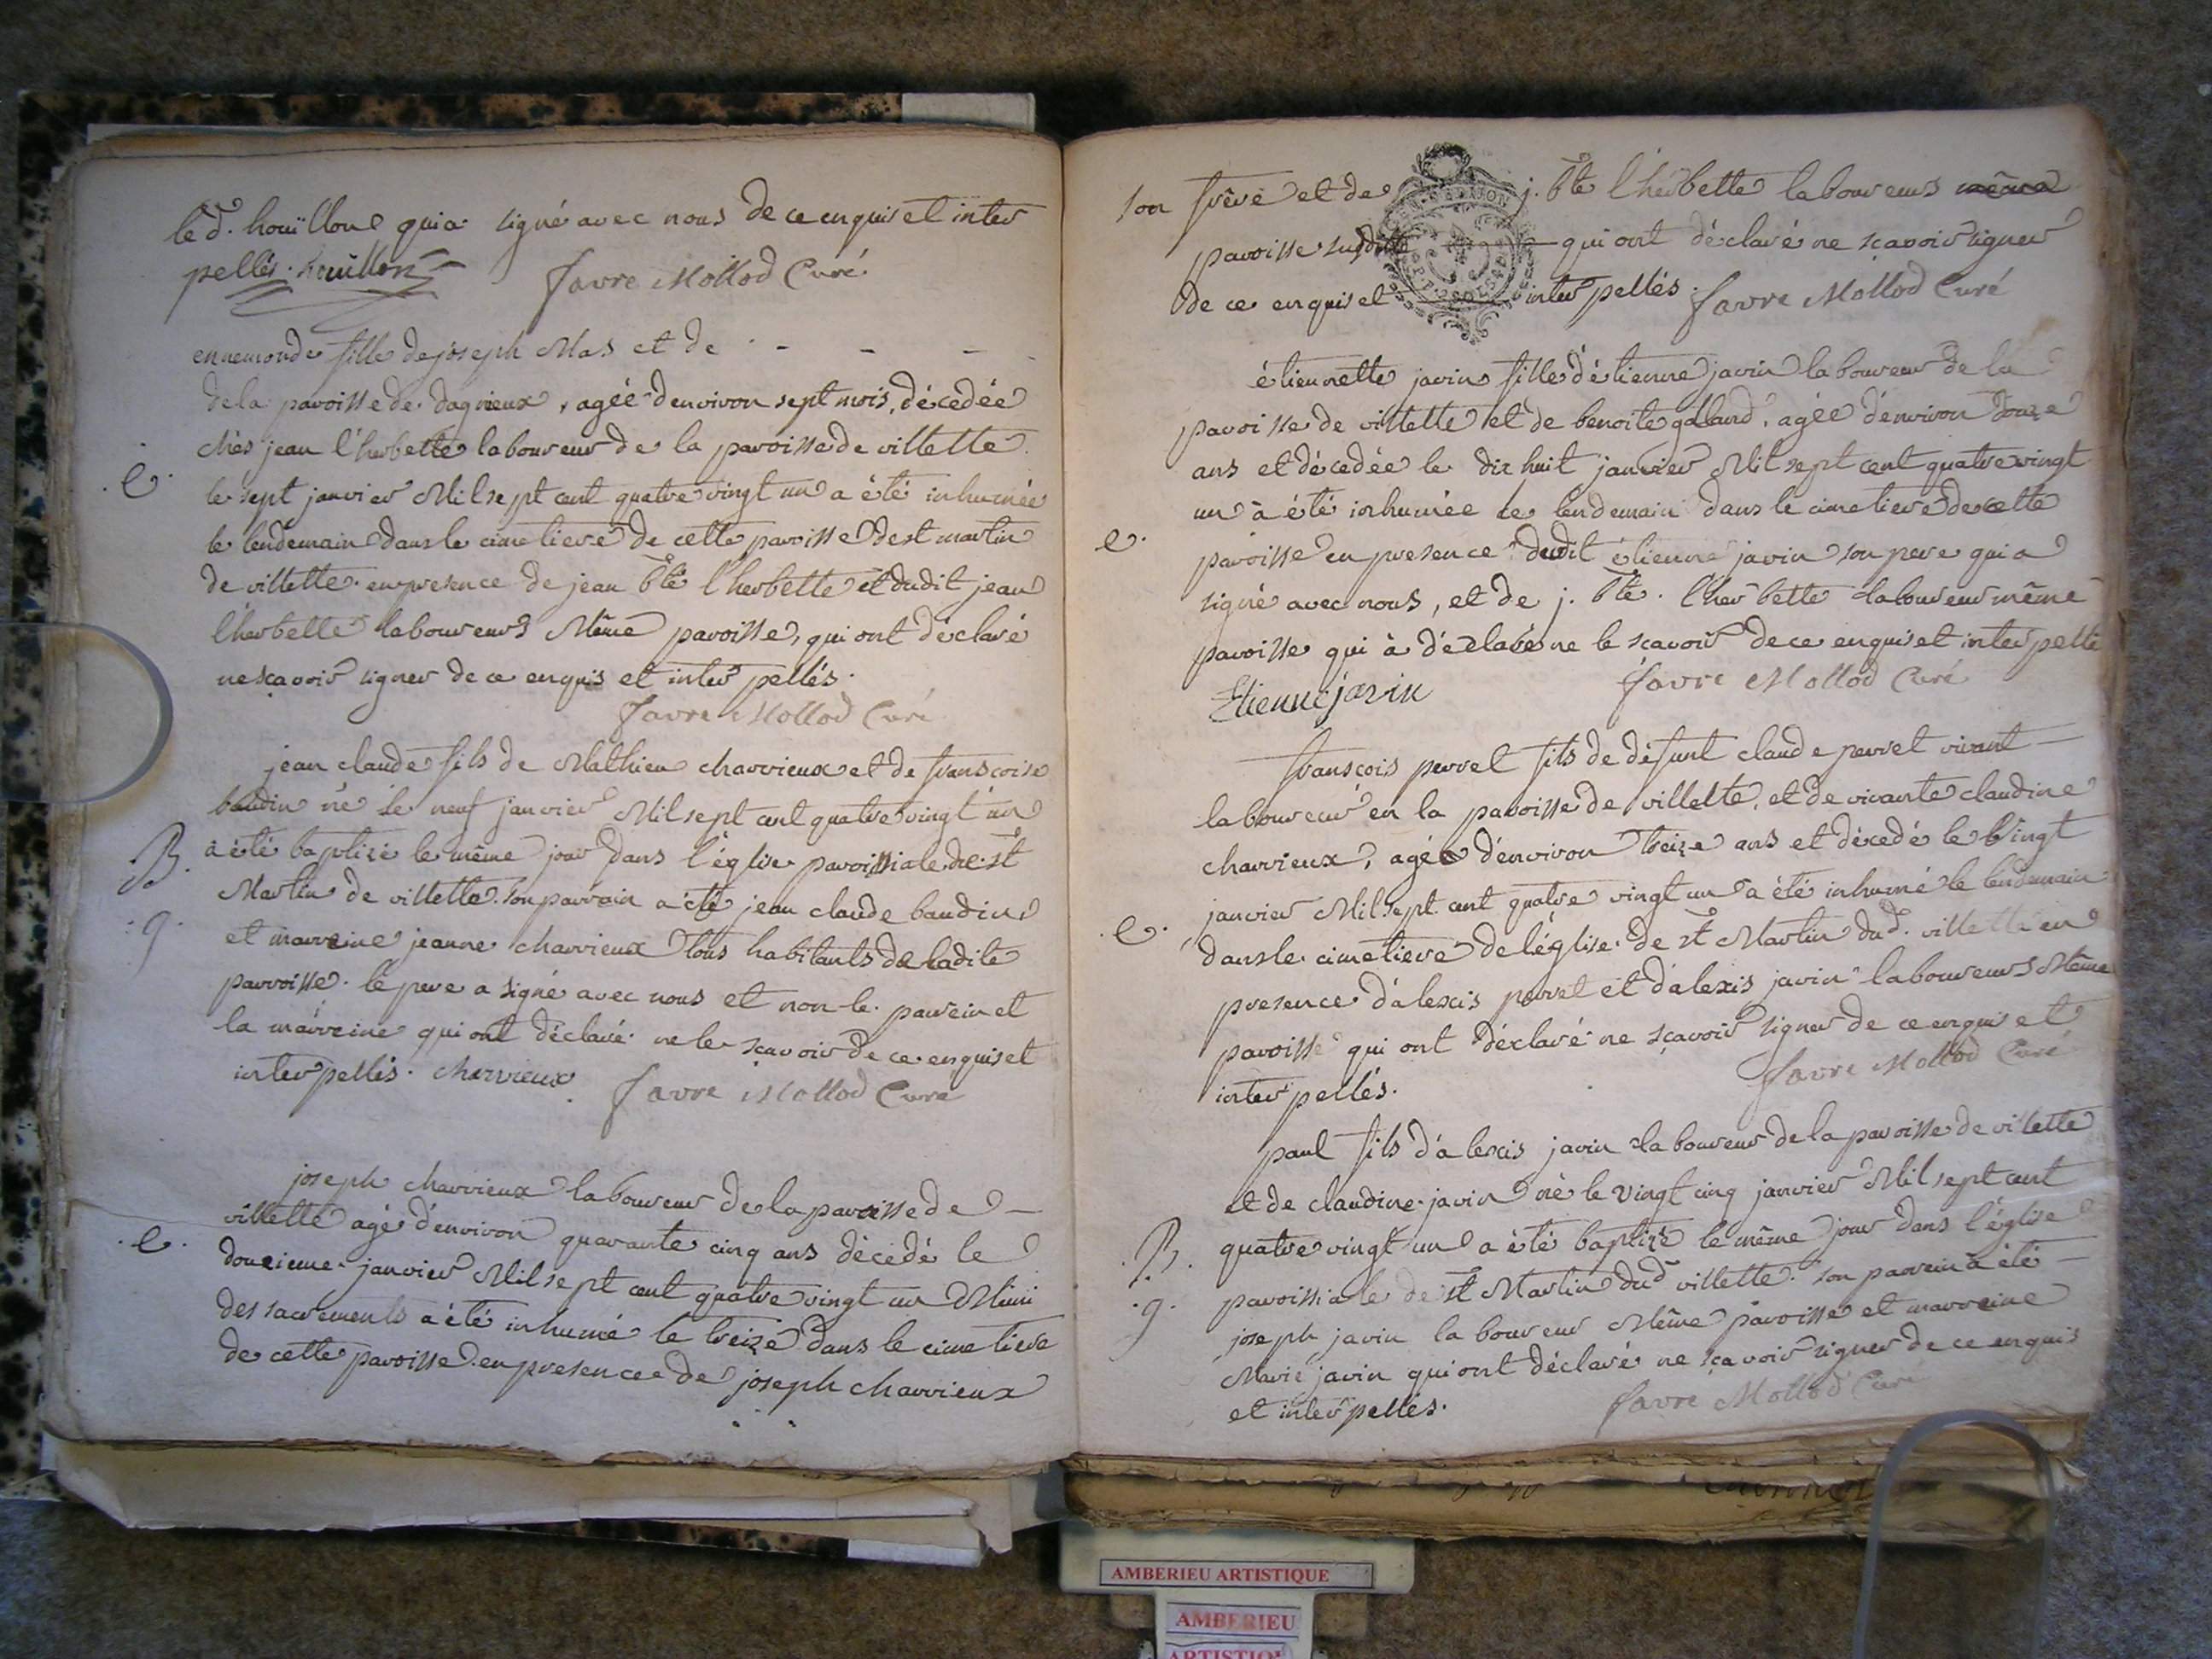 le d. houillon qui a signé avec nous de ce enquis et inter
pellés. houillon favre Mollod Curé
ennemonde fille de joseph Mas et de - - -
de la paroisse de dagnieux, agée denviron sept mois, décédée
chès jean l'herbette laboureur de la paroisse de villette
e.
le sept janvier Mil sept cent quatre vingt un a été inhumée
le lendemain dans le cimetiere de cette paroisse de st martin
de villette. en presence de jean bte l'herbette et dudit jean
l'herbette laboureurs Même paroisse, qui ont déclaré
ne scavoir signer de ce enquis et interpellés.
favre Mollod Curé
jean claude fils de Mathieu charvieux et de franscoise
baudin né le neuf janvier Mil sept cent quatre vingt un
B.
à été baptizé le même jour dans l'église paroissiale de st
Martin de villette. son parrain a été jean claude baudin
g.
et marreine jeanne charvieux tous habitants de ladite
parroisse. le pere a signé avec nous et non le parrein et
la marreine qui ont déclaré ne le scavoir de ce enquis et
interpellés. charvieux favre Mollod Curé
joseph charvieux laboureur de la paroisse de
villette agé d'environ quarante cinq ans décédé le
e.
douzieme janvier Mil sept cent quatre vingt un Muni
des sacrements a été inhumé le treize dans le cimetiere
de cette paroisse en presence de joseph charvieux
son frère et de j. bte l'herbette laboureurs même
paroisse susditte qui ont déclaré ne scavoir signer
de ce enquis et interpellés. favre Mollod Curé
étiennette javin fille d'étienne javin laboureur de la
paroisse de villette et de benoite galland, agée d'environ douze
ans et décedée le dix huit janvier Mil sept cent quatre vingt
un à été inhumée le lendemain dans le cimetiere de cette
e.
paroisse en presence dudit étienne javin son pere qui a
signé avec nous, et de j. bte. l'herbette laboureur même
paroisse qui à déclaré ne le scavoir de ce enquis et interpellé
Etienne javin favre Mollod Curé
franscois perret fils de défunt claude perret vivant
laboureur en la paroisse de villette, et de vivante claudine
charvieux, agé d'environ treize ans et décedé le vingt
janvier Mil sept cent quatre vingt un a été inhumé le lendemain
e.
dans le cimetiere de l'église de st Martin dud. villette en
presence d'alexis perret et d'alexis javin laboureurs Même
paroisse qui ont déclaré ne scavoir signer de ce enquis et
interpellés. favre Mollod Curé
paul fils d'alexis javin laboureur de la paroisse de villette
et de claudine javin né le vingt cinq janvier Mil sept cent
B.
quatre vingt un a été baptizé le même jour dans l'église
g.
paroissiale de st Martin dud villette. son parrein à été
joseph javin laboureur Même paroisse et marreine
Marie javin qui ont déclaré ne scavoir signer de ce enquis
et interpellés. favre Mollod Curé
AMBERIEU ARTISTIQUE
AMBERIEU
ARTISTIQUE